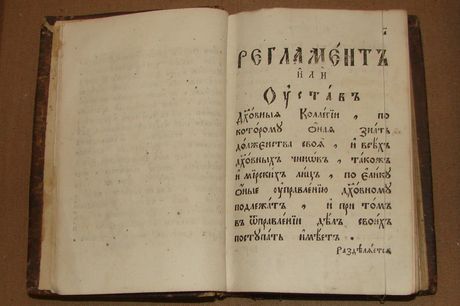 РЕГЛАМЕ́НТЪ
и҆лѝ
Оу҆ста́въ
Дꙋхо́вныѧ Колле́гїи , по
кото́ромꙋ ѻ҆наѧ зна́ть
до́лженства своѧ̑ , и҆ все́хъ
дꙋхо́вныхъ чинѡ́въ , та́кожъ
и҆ мїрски́хъ ли́цъ , по е҆ли́кꙋ
ѻ҆ные оу҆правле́нїю дꙋхо́вномꙋ
подлежа́тъ , и҆ при то́мъ
въ ѿправле́нїи дѣ́лъ свои́хъ
поступа́ть и҆мѣ́етъ .
Раздѣлѧ́етсѧ